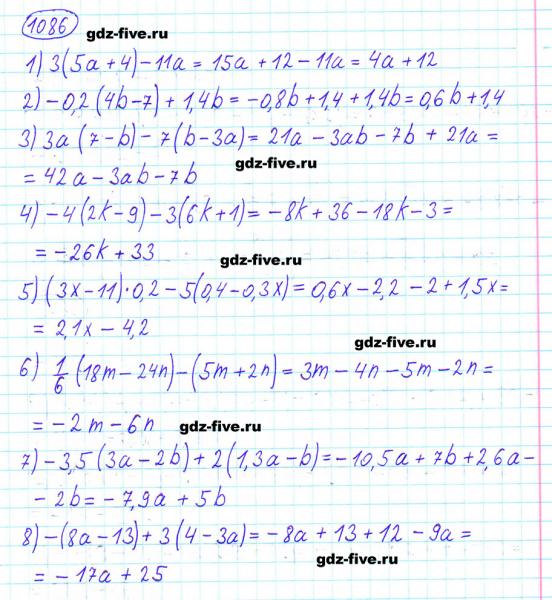 1086
gdz-five.ru
1) 3(5a+4)-11a = 15a+12-11a = 4a+12
2) -0,2(4b-7)+1,4b = -0,8b+1,4+1,4b = 0,6b+1,4
3) 3a(7-b)-7(b-3a) = 21a-3ab-7b+21a =
gdz-five.ru
= 42a-3ab-7b
4) -4(2k-9)-3(6k+1) = -8k+36-18k-3 =
= -26k+33
gdz-five.ru
5) (3x-11)·0,2-5(0,4-0,3x) = 0,6x-2,2-2+1,5x =
= 2,1x-4,2
gdz-five.ru
6) 1/6(18m-24n)-(5m+2n) = 3m-4n-5m-2n =
= -2m-6n
gdz-five.ru
7) -3,5(3a-2b)+2(1,3a-b) = -10,5a+7b+2,6a-
-2b = -7,9a+5b
8) -(8a-13)+3(4-3a) = -8a+13+12-9a =
gdz-five.ru
= -17a+25